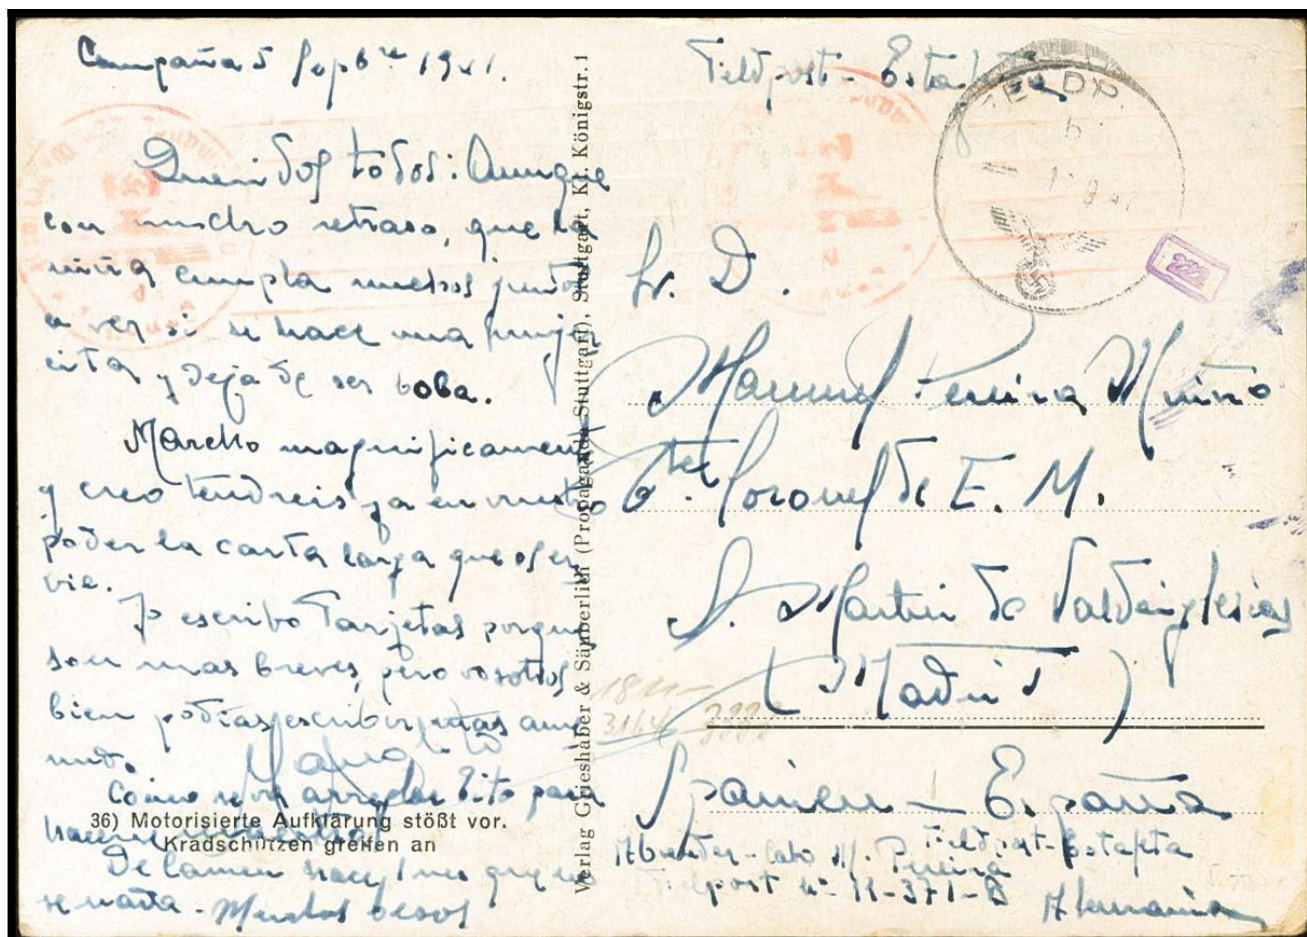 Campaña 5 Sepbre 1941.
Queridos todos: Aunque
con mucho retraso, que la
niña cumpla muchos
a ver si se hace una
y deja de ser boba.
Marcho magnificamente
y creo tendreis ya en vuestro
poder la carta larga que os en
vie.
escribo Tarjetas porque
son mas breves, pero vosotros
bien podias escribir mas ame
nudo.
Manolo
Como se va arreglar Tito para
hacerse
De Carmen hace que no
se nada - Muchos besos
36) Motorisierte Aufklärung stößt vor.
Kradschützen greifen an
Verlag Grieshaber & Säuberlich (Propaganda Stuttgart), Stuttgart, Kl. Königstr. 1
Feldpost - Estafeta
FELDP.
b
222
Sr. D.
Manuel Pereira Muiño
Tte. Coronel de E. M.
S. Martin de Valdeiglesias
(Madrid)
1811
3164
Spanien - España
Absender - Cabo M. Pereira Feldpost - Estafeta
Feldpost nº 11-371-B
Alemania